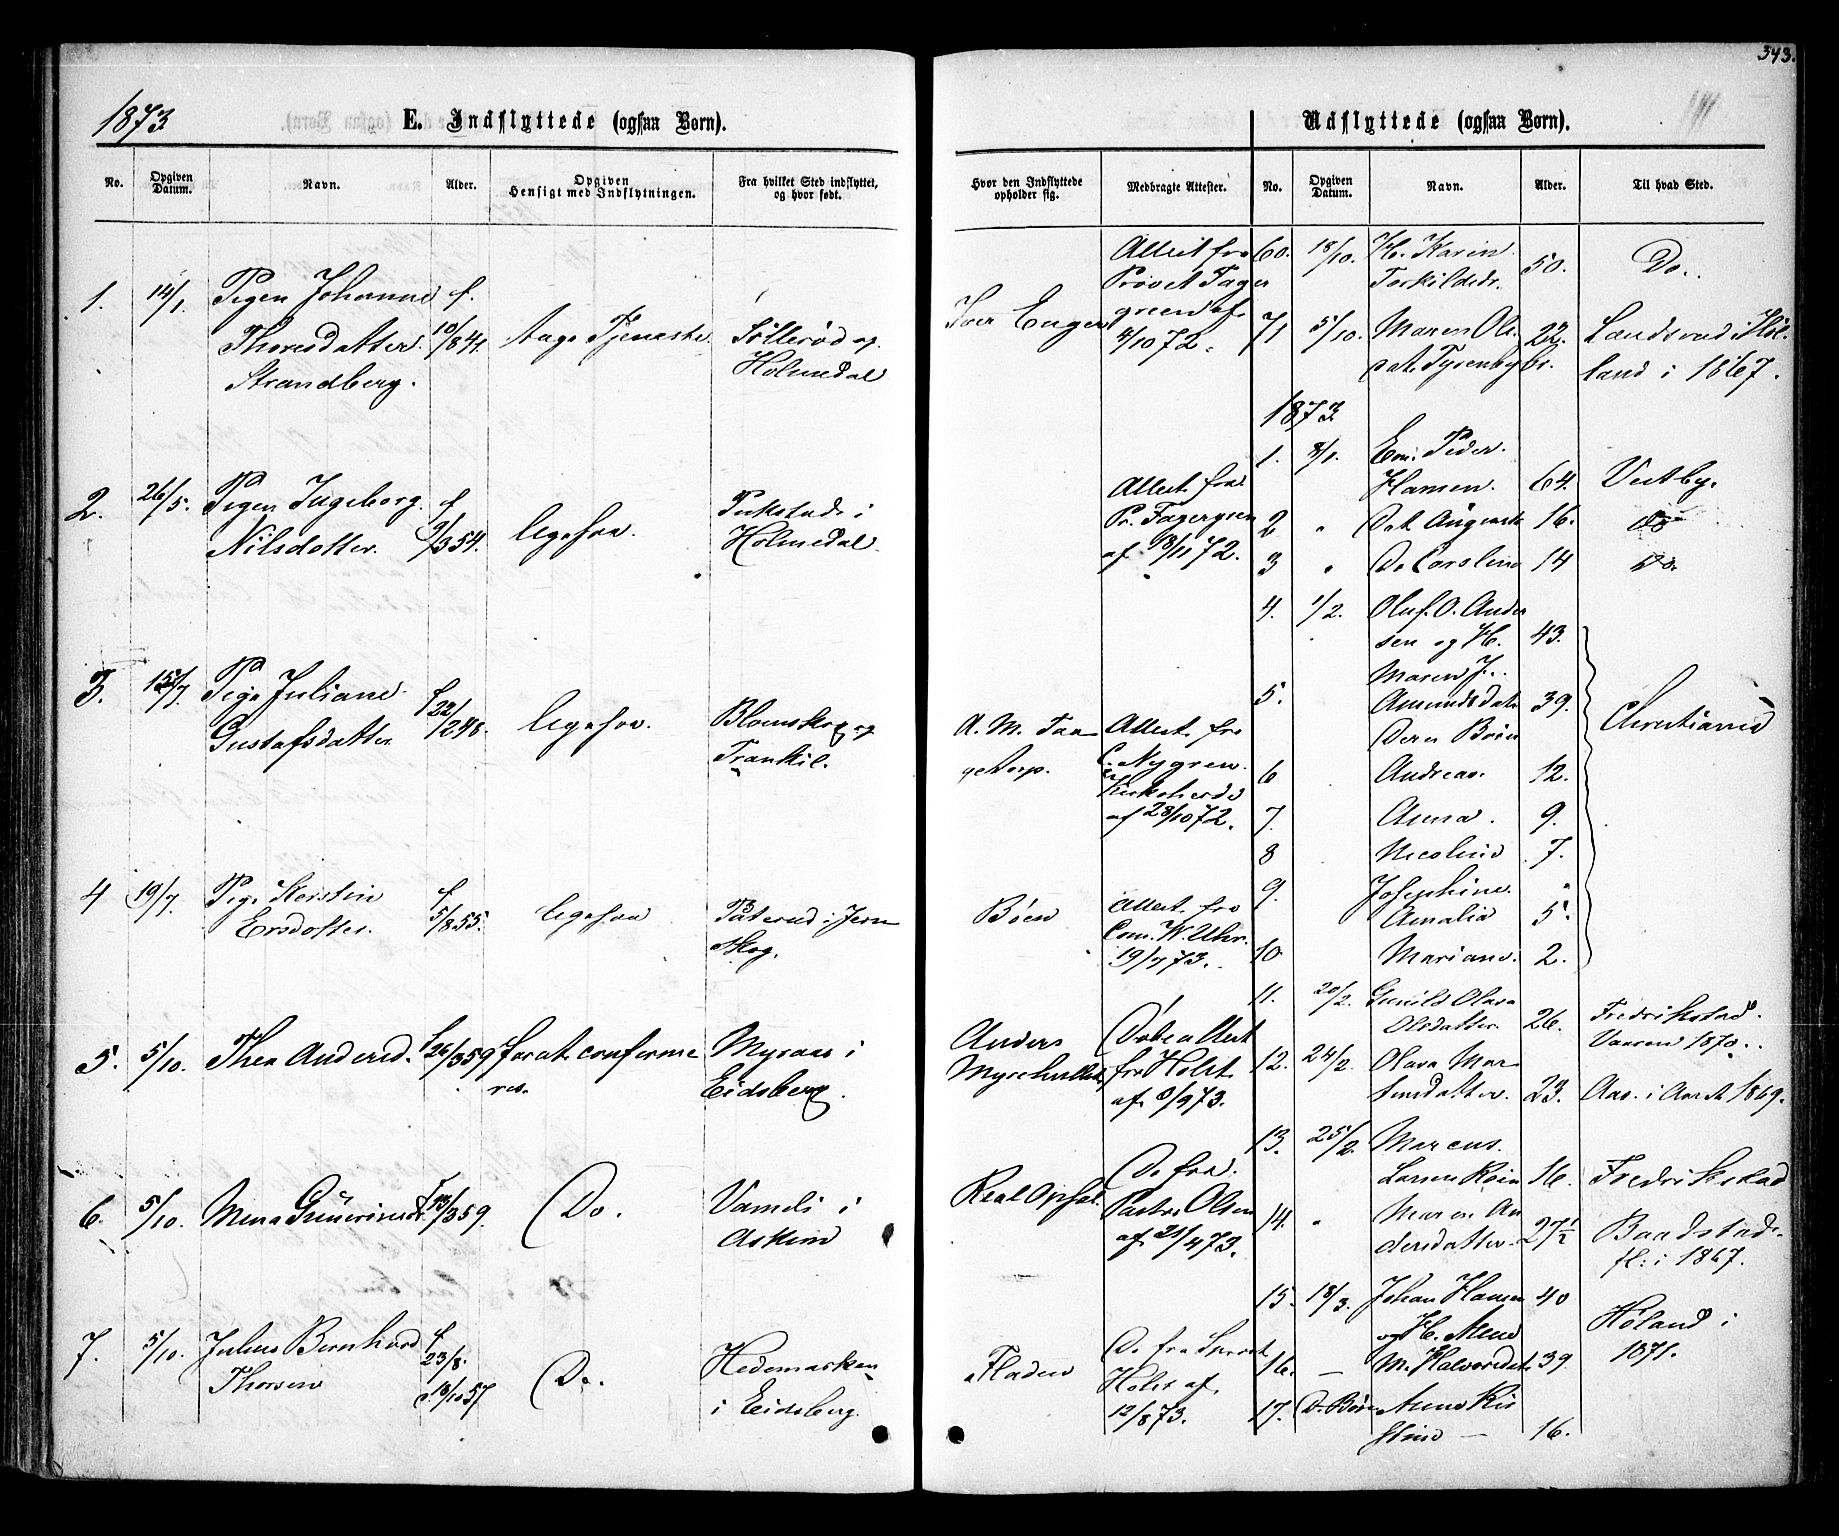 343.
1873
E. Indflyttede (ogsaa Børn).
No.
Opgiven Datum.
Navn.
Alder.
Opgiven Hensigt med Indflytningen.
Fra hvilket Sted indflyttet, og hvor født.
1.
14/1.
Pigen Johanne
Thoresdatter
Strandberg.
f.
10/8 44.
Tage Tjeneste
Holmedal
2.
26/5.
Pigen Ingeborg
Nilsdotter.
f
9/3 54.
ligesaa.
Holmedal.
3.
15/7.
Pige Juliane
Gustafsdatter
f 22/12 48.
ligesaa.
Blomskog og
Trankil.
4
19/7.
Pige Kerstin
Ersdotter.
f
5/8 55.
ligesaa
Jern
skog.
5.
5/10.
Thea Andersd.
f 26/3 59
for at confirme
res.
Myraas i
Eidsberg.
6.
5/10.
f 13/3 59.
Do.
Vameli i
Askim
7.
5/10.
Julius Bernhard
Thorsen
f
23/8.
d. 18/10 57
Do.
Hedemarken
i Eidsberg.
Udflyttede (ogsaa Børn).
Hvor den Indflyttede opholder sig.
Medbragte Attester.
No.
Opgiven Datum.
Navn.
Alder.
Til hvad Sted.
Iver Enger
Attest fra
Provst Fager
green af
4/10 72.
Attest fra
Pr. Fagergreen
af 18/11 72.
A. M.
Attest fra
C. Nygren.
Kirkoherde
af 28/10 72.
Bøen
Attest fra
Com. W. Uhr.
19/7 73.
Anders
Døbeattest
fra Holst
af 8/9 73.
Do fra
Pastor Olsen
af 21/4 73.
Fladen
Do fra
Holst af
12/8 73.
60.
18/10.
H. Karin
Torkildsdr.
50.
Do.
71
5/10.
Maren Ols
dat. Tysenby
22
br.
land i 1867.
1873
1.
8/1.
Em. Peder
Hansen.
64.
Vestby.
2
"
Dat. Auguste
16.
do
3
"
Do Caroline
14
Do.
4.
1/2.
Oluf. O. Ander
sen og H.
43.
5.
Maren J.
Amundsdat.
39.
Christiania
Deres Børn
6
Andreas.
12.
7.
Anna.
9.
8
Nicoline
7.
9.
Josephine
Amalia
5.
10.
Mariane.
2.
11.
20/2.
Gunild Olava
Olsdatter.
26.
Fredrikstad.
Vaaren 1870.
12.
24/2.
Olava Mar
tinsdatter.
23.
Aas. i Amtet 1869.
13.
25/2.
Marcus
Larsen
16.
Fredrikstad
14.
"
Maren An
dersdatter.
27½
Baadstad.
fl: i 1867.
15.
18/3.
Johan Hansen
40
Høland i
1871.
16.
—
og H. Anne
M. Halvorsdat.
39
17.
D. Børn
Anne Kir
stine —
16.